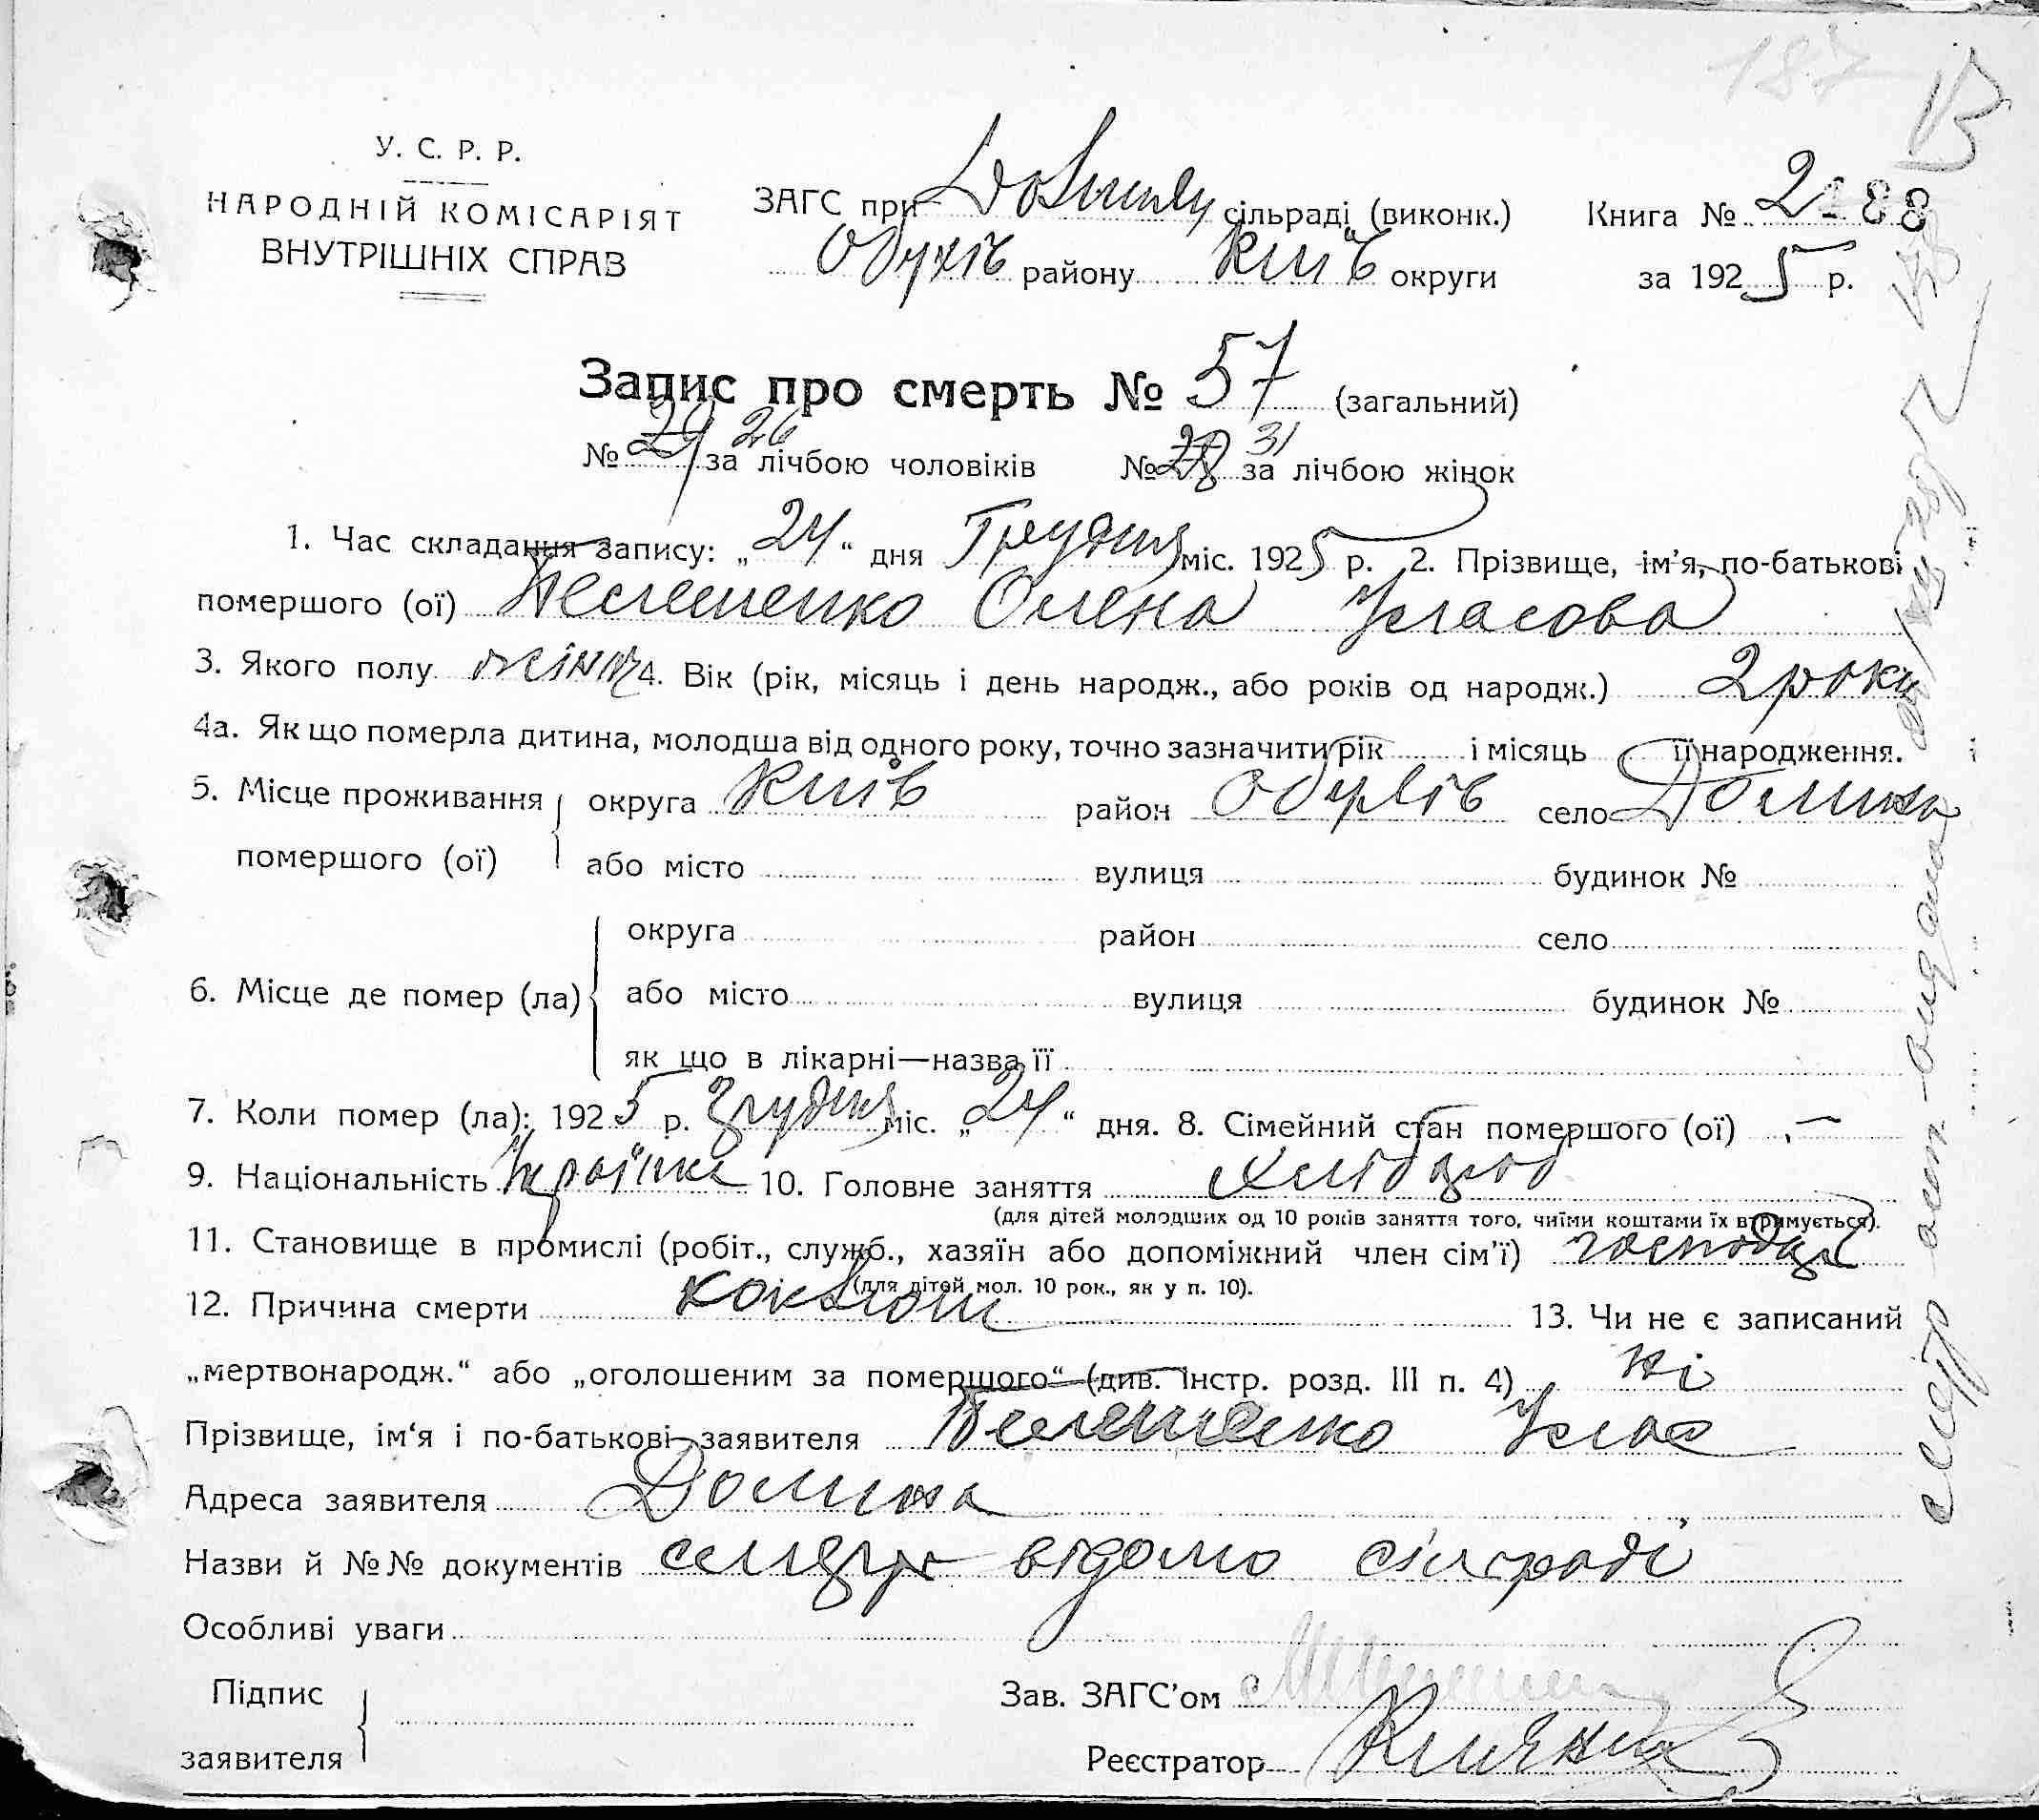 187
У. С. Р. Р.
НАРОДНІЙ КОМІСАРІЯТ
ВНУТРІШНІХ СПРАВ
ЗАГС при сільраді (виконк.) Книга № 2
Обухів району Київ округи за 1925 р.
Запис про смерть № 57 (загальний)
№ 29 26 за лічбою чоловіків № 28 31 за лічбою жінок
1. Час складання запису: „24“ дня Грудня міс. 1925 р. 2. Прізвище, ім'я, по-батькові
помершого (ої) Пелешенко Олена Уласова
3. Якого полу жіноч 4. Вік (рік, місяць і день народж., або років од народж.) 2 роки
4а. Як що померла дитина, молодша від одного року, точно зазначити рік і місяць її народження.
5. Місце проживання помершого (ої) округа Київ район Обухів село Долина
або місто вулиця будинок №
6. Місце де помер (ла) округа район село
або місто вулиця будинок №
як що в лікарні—назва її
7. Коли помер (ла): 1925 р. Грудня міс. „24“ дня. 8. Сімейний стан помершого (ої) —
9. Національність Українка 10. Головне заняття хлібороб
(для дітей молодших од 10 років заняття того, чиїми коштами їх втримується).
11. Становище в промислі (робіт., служб., хазяїн або допоміжний член сім'ї)
(для дітей мол. 10 рок., як у п. 10).
12. Причина смерти коклюш 13. Чи не є записаний
„мертвонародж.“ або „оголошеним за помершого“ (див. Інстр. розд. III п. 4) ні
Прізвище, ім'я і по-батькові заявителя Пелешенко Улас
Адреса заявителя Долина
Назви й №№ документів відомо сілраді
Особливі уваги
Підпис заявителя
Зав. ЗАГС'ом
Реєстратор